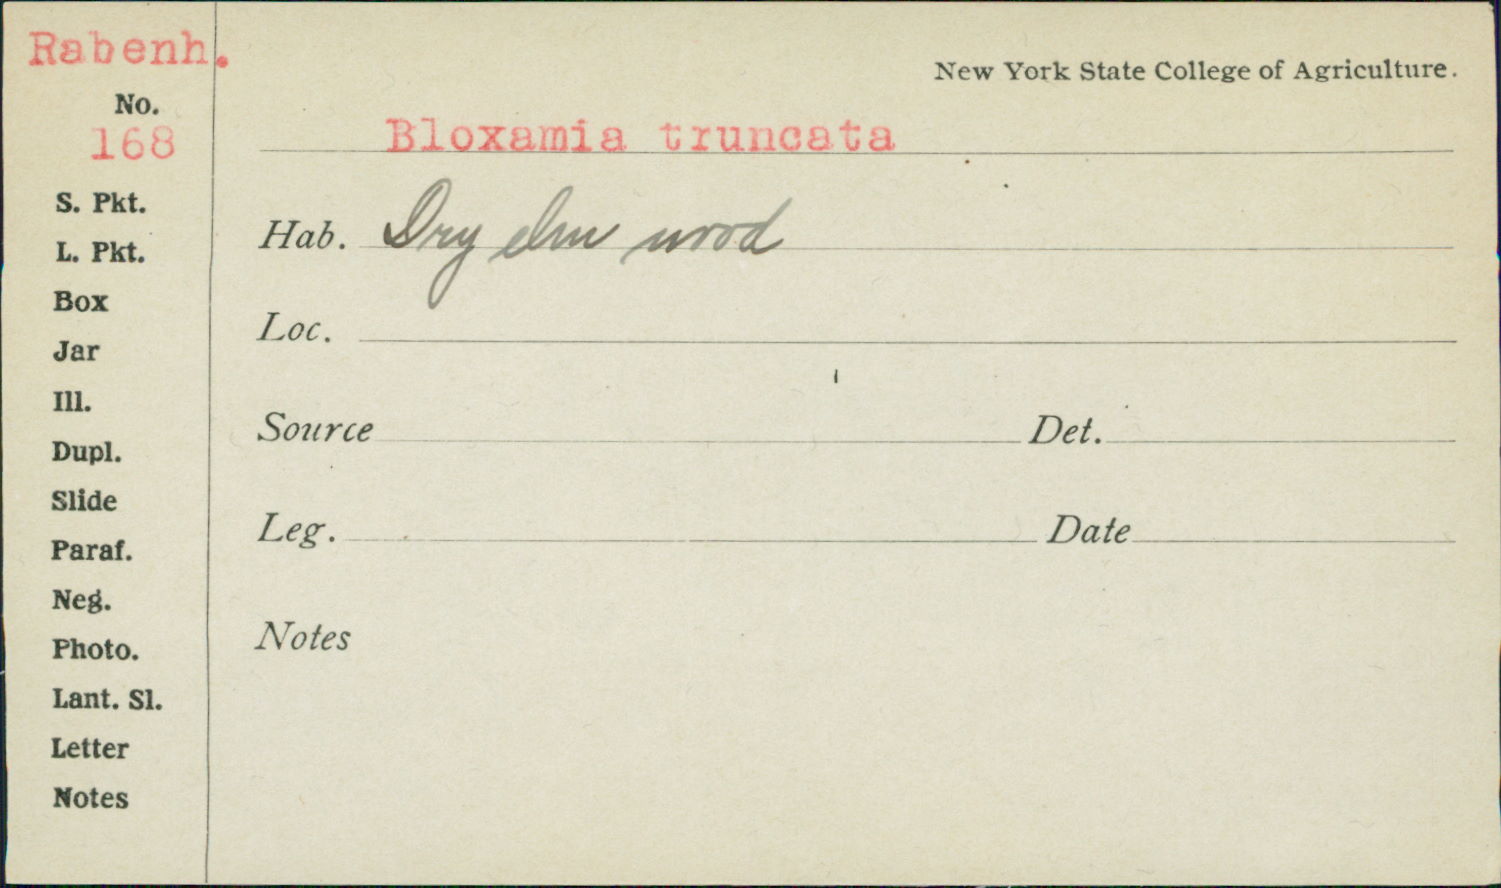 Rabenh.
No.
168
S. Pkt.
L. Pkt.
Box
Jar
Ill.
Dupl.
Slide
Paraf.
Neg.
Photo.
Lant. Sl.
Letter
Notes
New York State College of Agriculture.
Bloxamia truncata
Hab. Dry elm wood
Loc.
Source Det.
Leg. Date
Notes